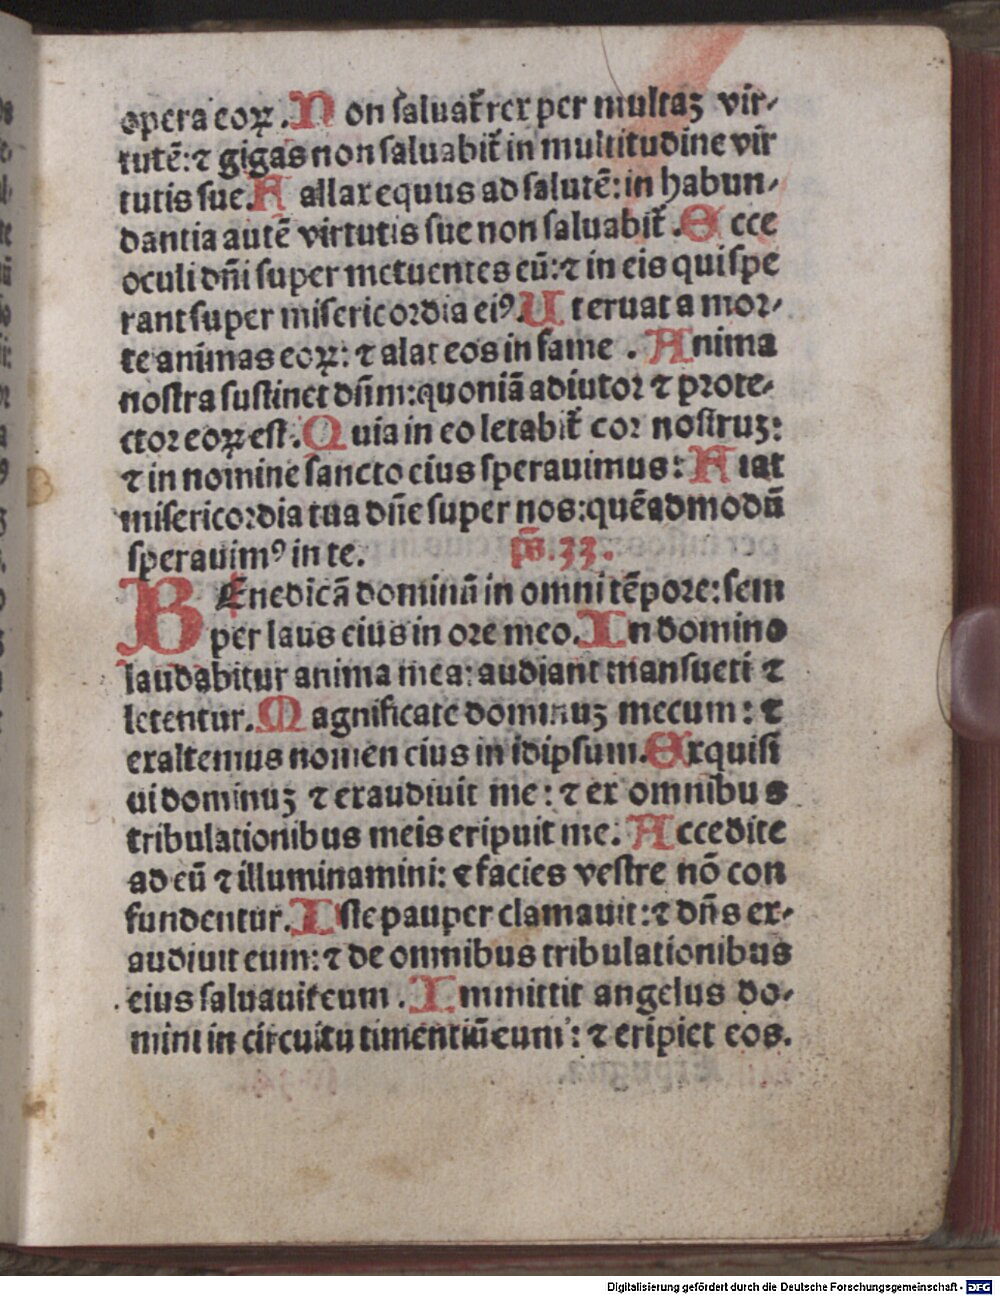 opera eoꝝ. Non saluat᷑ rex per multaꝫ vir-
tutē: ⁊ gigas non saluabit᷑ in multitudine vir
tutis sue. Fallax equus ad salutē: in habun-
dantia autē virtutis sue non saluabit᷑. Ecce
oculi dn̄i super metuentes eū: ⁊ in eis qui spe
rant super misericordia eiꝰ. Ut eruat a mor-
te animas eoꝝ: ⁊ alat eos in fame. Anima
nostra sustinet dn̄m: quoniā adiutor ⁊ prote-
ctor eoꝝ est. Quia in eo letabit᷑ cor nostruꝫ:
⁊ in nomine sancto eius sperauimus: Fiat
misericordia tua dn̄e super nos: quēadmodū
sperauimꝰ in te. ps̄. 33.
BEnedicā dominū in omni tēpore: sem
per laus eius in ore meo. In domino
laudabitur anima mea: audiant mansueti ⁊
letentur. Magnificate dominuꝫ mecum: ⁊
exaltemus nomen eius in idipsum. Exquisi
ui dominuꝫ ⁊ exaudiuit me: ⁊ ex omnibus
tribulationibus meis eripuit me. Accedite
ad eū ⁊ illuminamini: ⁊ facies vestre nō con
fundentur. Iste pauper clamauit: ⁊ dn̄s ex-
audiuit eum: ⁊ de omnibus tribulationibus
eius saluauit eum. Immittit angelus do-
mini in circuitu timentiū eum: ⁊ eripiet eos.
Digitalisierung gefördert durch die Deutsche Forschungsgemeinschaft - DFG